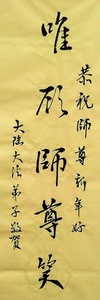 恭祝師尊新年好
唯願師尊笑
大陆大法弟子敬賀